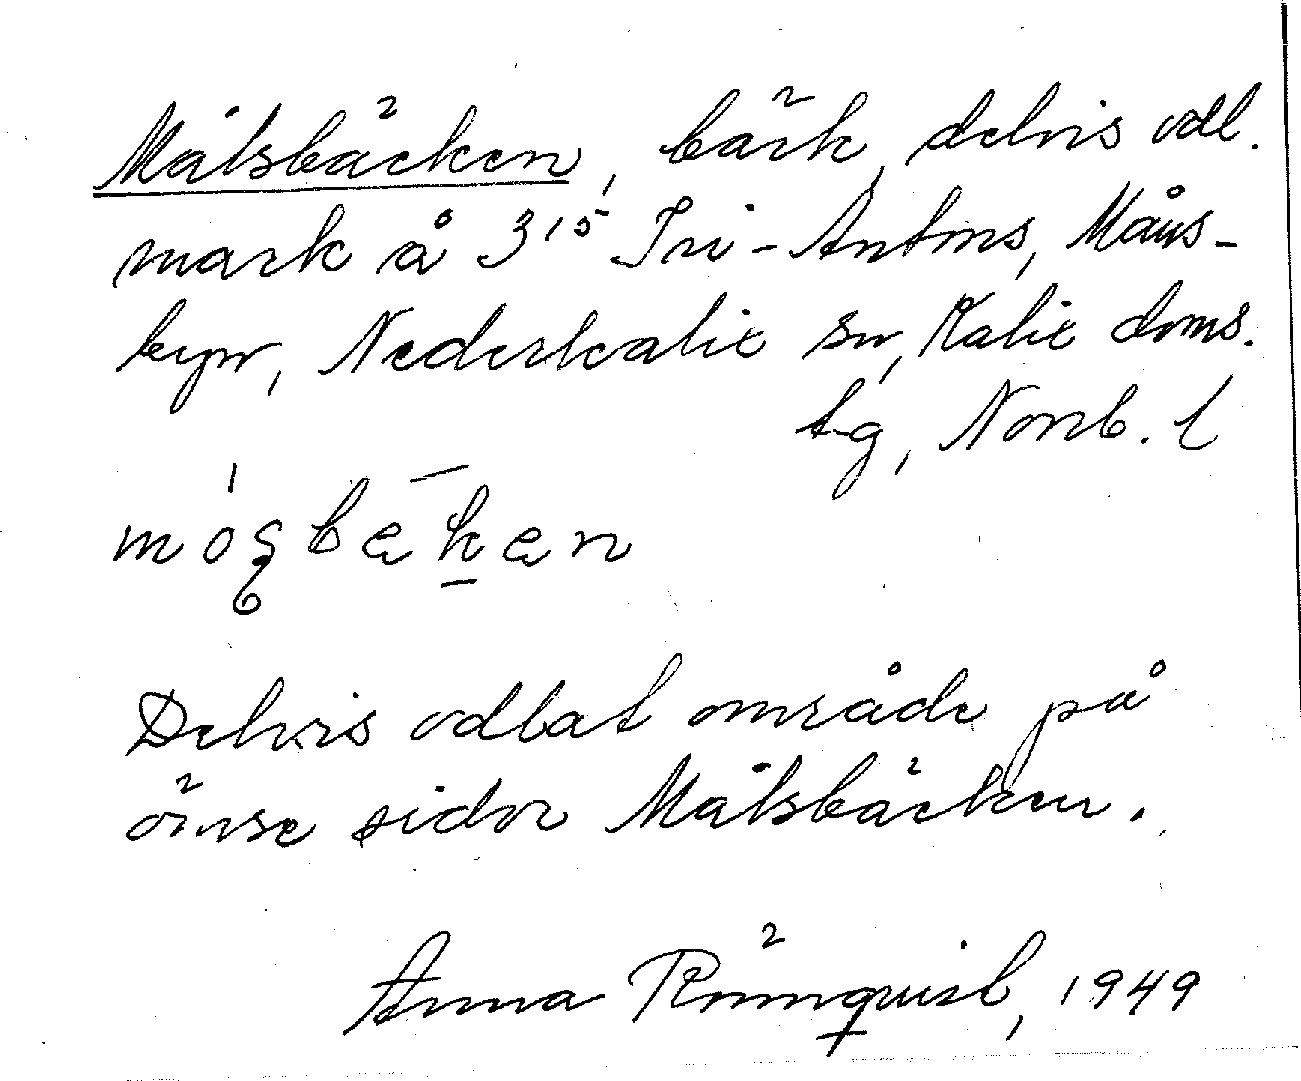 Målsbäcken, bäck, delvis odl.
mark å 3¹⁵ Tri-Antms, Månsbyn,
Nederkalix sn, Kalix doms.
tg, Norrb. l
Delvis odlat område på
ömse sidor Målsbäcken.
Anna Römquist, 1949